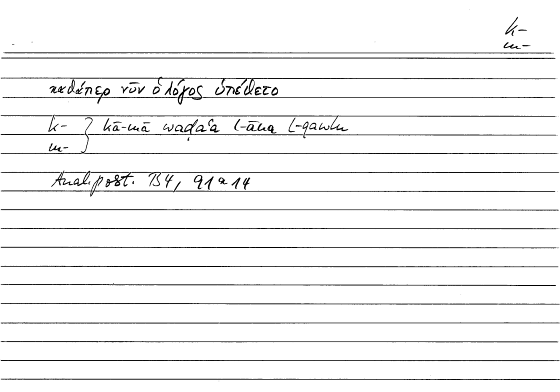 k-
m-
καθάπερ νῦν ὁ λόγος ὑπέθετο
k- } kā-mā waḍaʿa l-āna l-qawlu
m-
Anal. post. B4, 91 a 14